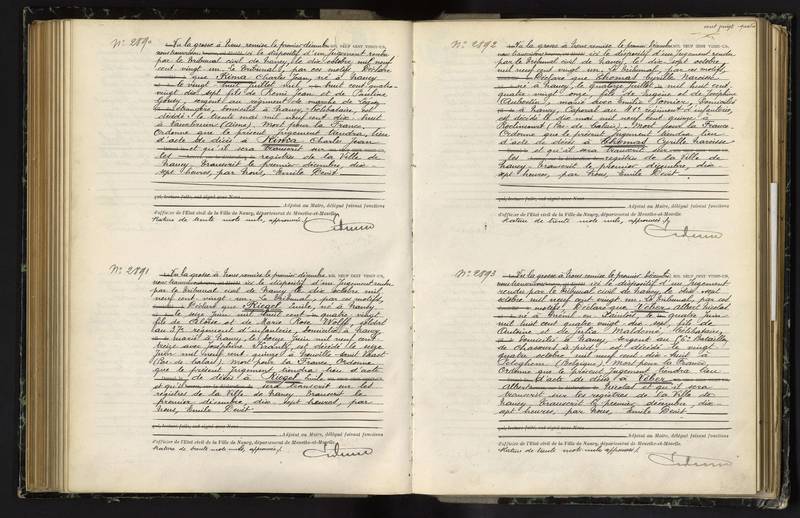 N° 289
Vu la grosse à Nous remise le premier décembre MIL NEUF CENT VINGT-UN,
nous transcrivons ici le dispositif d'un Jugement rendu
par le tribunal civil de Nancy, le dix octobre mil neuf
cent vingt un. Le tribunal, par ces motifs, Déclare
que Rima Charles Jean, né à Nancy
le vingt huit Juillet mil huit cent quatre
vingt dix sept fils de Rémi Jean et de Pauline
sergent au régiment de marche de légion
étrangère, domicilié à Nancy, célibataire, est
décédé le trente mai mil neuf cent dix huit
à (Aisne). Mort pour la France.
Ordonne que le présent Jugement tiendra lieu
d'acte de décès à Rima Charles Jean
et qu'il sera transcrit sur
les registres de la Ville de
Nancy. Transcrit le premier décembre, dix
sept heures, par Nous, Emile Devit
qui, lecture faite, ont signé avec Nous
Adjoint au Maire, délégué faisant fonctions
d'officier de l'État civil de la Ville de Nancy, département de Meurthe-et-Moselle.
Rature de trente mots nuls, approuvée /.
N° 2891
Vu la grosse à Nous remise le premier décembre MIL NEUF CENT VINGT-UN,
nous transcrivons ici le dispositif d'un Jugement rendu
par le tribunal civil de Nancy le dix octobre mil
neuf cent vingt un. Le tribunal, par ces motifs,
Déclare que Riegel Emile, né à Nancy
le seize Juin mil huit cent quatre vingt
fils de et de Marie Rose Wolff, soldat
au 37e régiment d'infanterie, domicilié à Nancy
marié à Nancy, le douze Juin mil neuf cent
Joséphine est décédé le seize
Juin mil neuf cent quinze à Neuville Saint Vaast
(Pas de Calais). Mort pour la France. Ordonne
que le présent Jugement tiendra lieu d'acte
de décès à Riegel Emile
et qu'il sera transcrit sur les
registres de la Ville de Nancy. Transcrit le
premier décembre, dix sept heures, par
Nous, Emile Devit
qui, lecture faite, ont signé avec Nous
Adjoint au Maire, délégué faisant fonctions
d'officier de l'État civil de la Ville de Nancy, département de Meurthe-et-Moselle.
Rature de trente mots nuls, approuvée /.
N° 2892
Vu la grosse à Nous remise le premier décembre MIL NEUF CENT VINGT-UN,
nous transcrivons ici le dispositif d'un Jugement rendu
par le tribunal civil de Nancy, le dix sept octobre,
mil neuf cent vingt un. Le tribunal, par ces motifs,
Déclare que Thomas Cyrille Narcisse
né à Nancy, le quatorze Juillet mil huit cent
quatre vingt onze, fils de Eugène et de Joséphine
marié avec Emilie domicilié
à Nancy, Caporal au régiment d'infanterie,
est décédé le dix mai mil neuf cent quinze à
Roclincourt (Pas de Calais). Mort pour la France.
Ordonne que le présent Jugement tiendra lieu
d'acte de décès à Thomas Cyrille Narcisse
et qu'il sera transcrit sur
les registres de la Ville de
Nancy. Transcrit le premier décembre, dix
sept heures, par Nous, Emile Devit
qui, lecture faite, ont signé avec Nous
Adjoint au Maire, délégué faisant fonctions
d'officier de l'État civil de la Ville de Nancy, département de Meurthe-et-Moselle.
Rature de trente mots nuls, approuvée /.
N° 2893
Vu la grosse à Nous remise le premier décembre MIL NEUF CENT VINGT-UN,
nous transcrivons ici le dispositif d'un Jugement
rendu par le tribunal civil de Nancy, le dix sept
octobre mil neuf cent vingt un. Le tribunal, par ces
motifs, Déclare que Veber Albert Nicolas
né à le quatre Juin
mil huit cent quatre vingt dix sept, fils de
Antoine et de Julie célibataire,
domicilié à Nancy, sergent au Bataillon
de chasseurs à pied est décédé le vingt
quatre octobre mil neuf cent dix huit à
(Belgique). Mort pour la France.
Ordonne que le présent Jugement tiendra lieu
d'acte de décès à Veber
Albert Nicolas et qu'il sera
transcrit sur les registres de la Ville de
Nancy. Transcrit le premier décembre, dix
sept heures, par Nous, Emile Devit
qui, lecture faite, ont signé avec Nous
Adjoint au Maire, délégué faisant fonctions
d'officier de l'État civil de la Ville de Nancy, département de Meurthe-et-Moselle.
Rature de trente mots nuls, approuvée /.